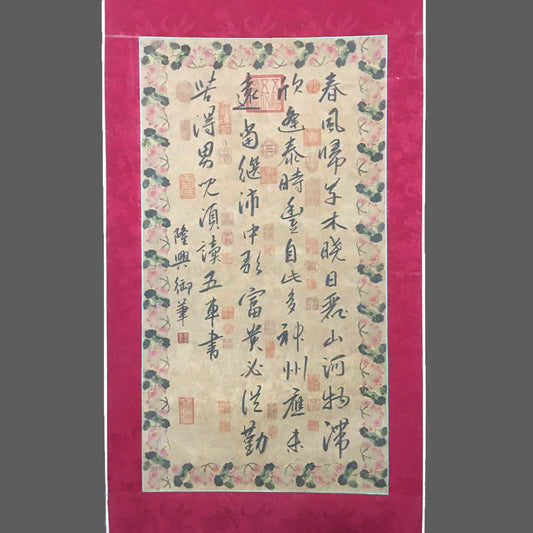 春風帰草木曉日麗山河物滞
欣逢泰時豊自此多神州應未
遠當繼沛中歌富貴必從勤
苦得男兒須讀五車書
隆興御筆